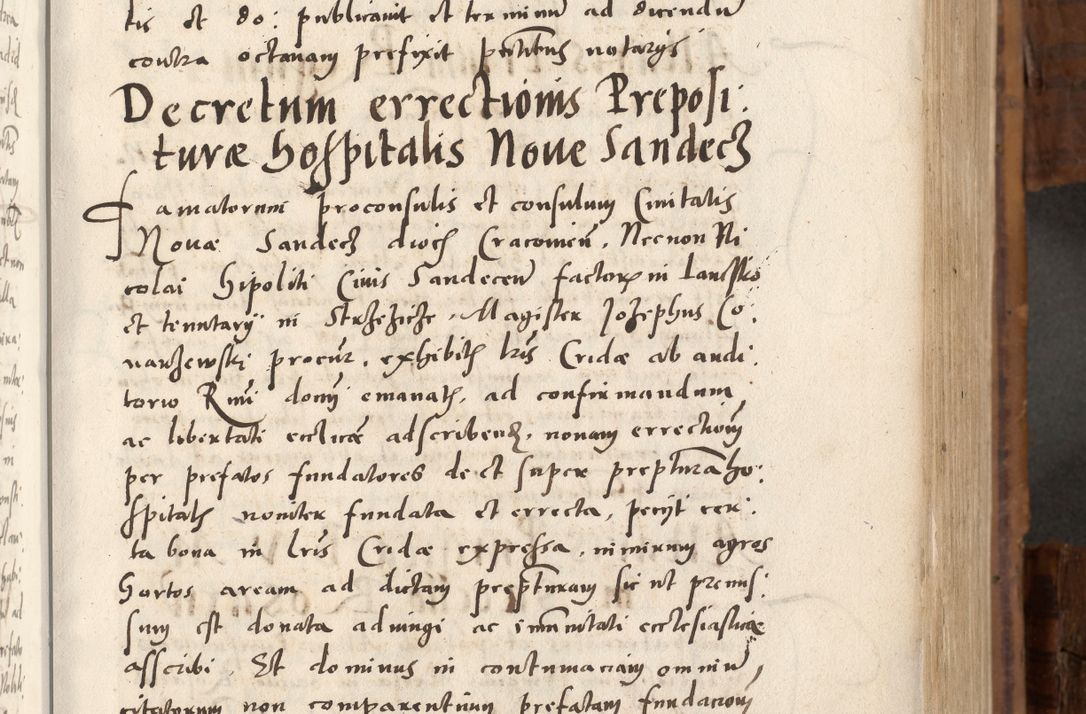 tis et do: publicavit et terminũ ad dicendũ
contra octavam prefixit pñtibus notarys
Decretum errectionis Preposi:
turæ hospitalis Nove Sandecz
Famatorum proconsulis et consulum Civitatis
Novæ Sandecz dioc̃ Cracovień, Necnon Ni
colai Hipoliti Civis Sandeceñ factor̃ in
et tenutary in Strzezicze, Magister Jozephus Co:
narzewski procur̃, exhibit̃ lrĩs Cridæ ab audi:
torio Rmi domi emanat̃, ad confirmandum
ac libertati ecclicæ adscribend̃, novam errectionẽ
per prefatos fundatores de et super prepturã ho:
spitalis noviter fundata et errecta, pecyt cer:
ta bona in lrĩs Cridæ expressa, nimirum agros
hortos aream ad dictam prepturam sic ut premis:
sum est donata adiungi ac im̃unitati ecclesiasticæ
asscribi. Et dominus in contumaciam omniũ
citatorum non comparentium prefatam fundacionẽ